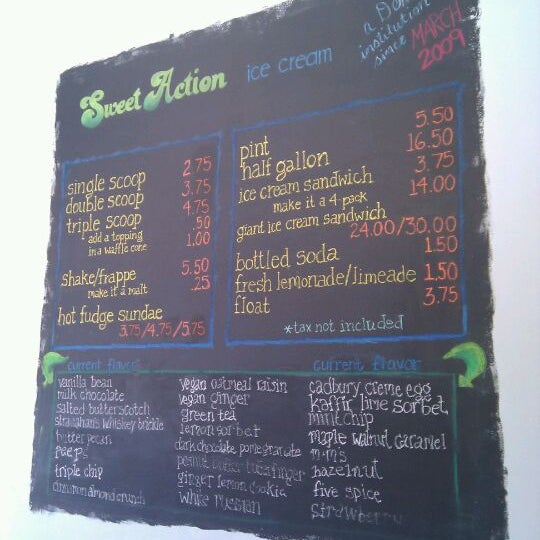 Sweet Action ice cream
institution
since
MARCH
2009
single scoop 2.75
double scoop 3.75
triple scoop 4.75
add a topping .50
in a waffle cone 1.00
shake/frappe 5.50
make it a malt .25
hot fudge sundae
3.75/4.75/5.75
pint 5.50
half gallon 16.50
ice cream sandwich 3.75
make it a 4 pack 14.00
giant ice cream sandwich
24.00/30.00
bottled soda 1.50
fresh lemonade/limeade 1.50
float 3.75
*tax not included
current flavor
vanilla bean
milk chocolate
salted butterscotch
stranahan's whiskey brickle
butter pecan
peeps
triple chip
cinnamon almond crunch
vegan oatmeal raisin
vegan ginger
green tea
lemon sorbet
dark chocolate pomegranate
peanut butter butterfinger
ginger lemon cookie
white russian
current flavor
cadbury creme egg
kaffir lime sorbet
mint chip
maple walnut caramel
m+m's
hazelnut
five spice
strawberry